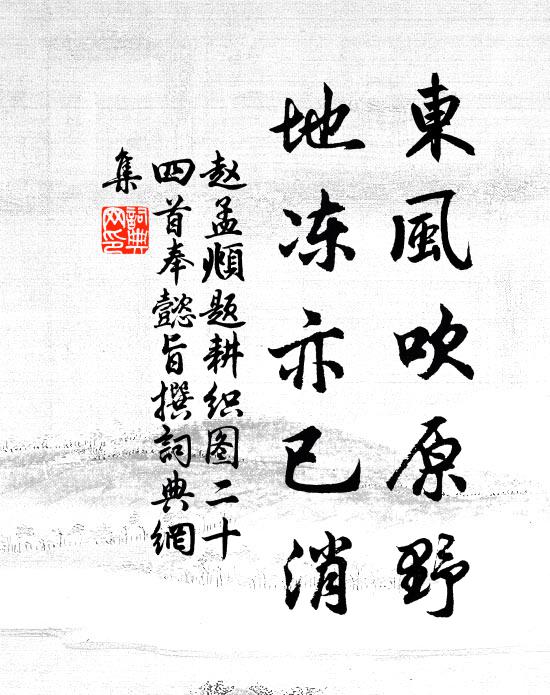 東風吹原野
地冻亦已消
赵孟頫题耕织图二十
四首奉懿旨撰詞典網
集
詞典
网印